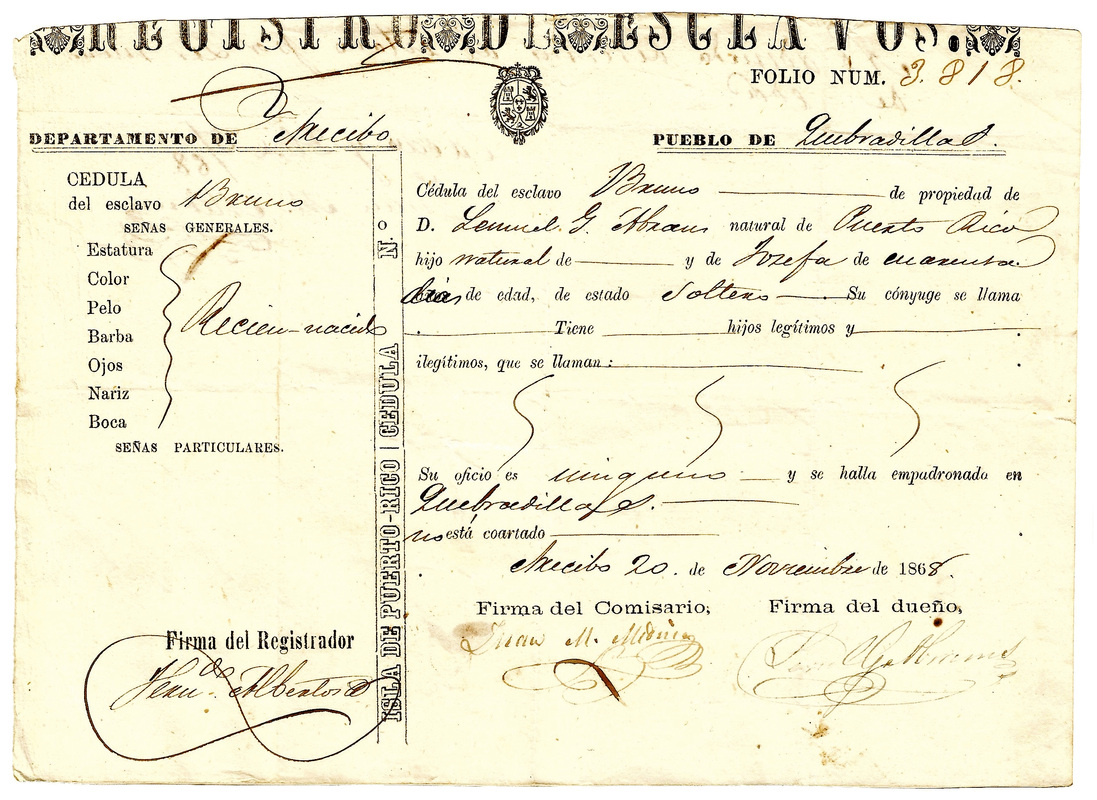 REGISTRO DE ESCLAVOS.
FOLIO NUM. 3.818.
DEPARTAMENTO DE Arecibo
PUEBLO DE Quebradillas.
CEDULA
del esclavo Bruno
SEÑAS GENERALES.
Estatura
Color
Pelo
Barba
Ojos
Nariz
Boca
Recien-nacido
SEÑAS PARTICULARES.
Firma del Registrador
ISLA DE PUERTO-RICO | CEDULA N.o
Cédula del esclavo Bruno de propiedad de
D. Lemuel G. Abrams natural de Puerto Rico
hijo natural de y de Jozefa de cuarenta
dias de edad, de estado Soltero Su cónyuge se llama
Tiene hijos legítimos y
ilegítimos, que se llaman:
Su oficio es ninguno y se halla empadronado en
Quebradillas.
no está coartado
Arecibo 20. de Noviembre de 1868.
Firma del Comisario,
Juan M.
Firma del dueño,